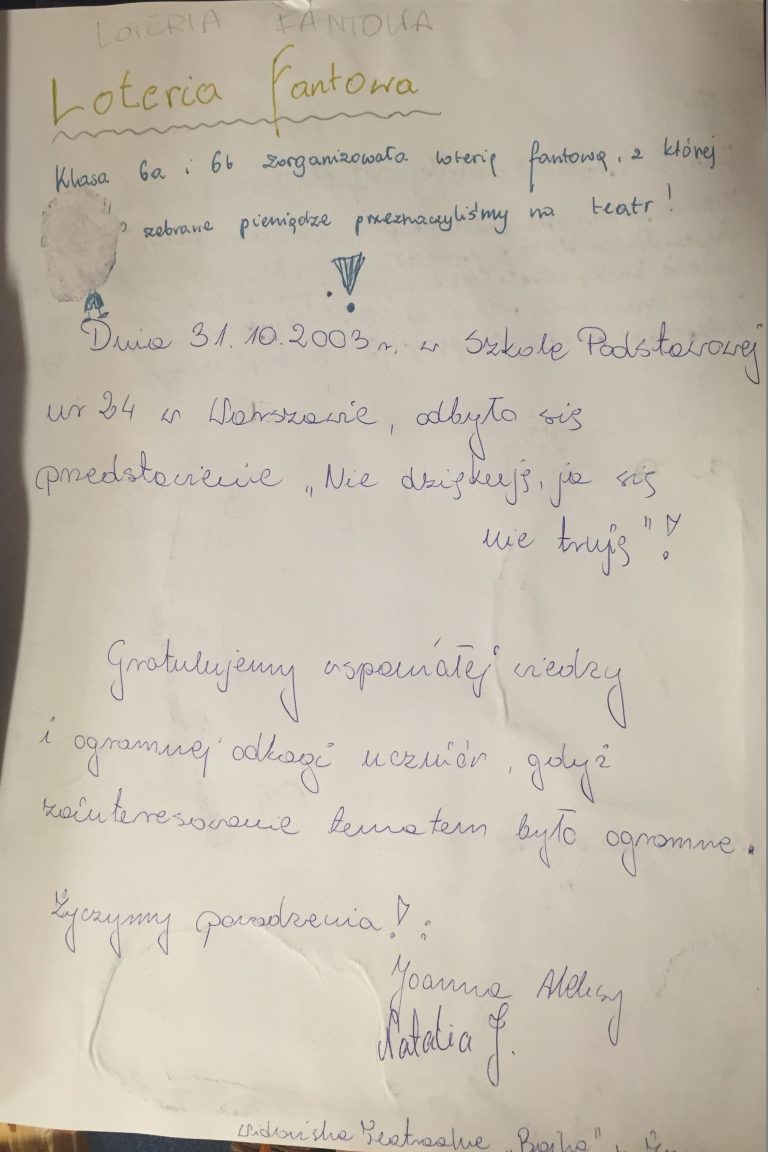 LOTERIA FANTOWA
Loteria fantowa
Klasa 6a i 6b zorganizowała loterię fantową, z której
zebrane pieniądze przeznaczyliśmy na teatr!
Dnia 31.10.2003 r. w Szkole Podstawowej
nr 24 w Warszawie, odbyło się
przedstawienie „Nie dziękuję, ja się
nie truję"!
Gratulujemy wspaniałej wiedzy
i ogromnej odwagi uczniów, gdyż
zainteresowanie tematem było ogromne.
Życzymy powodzenia!
Joanna
Natalia J.
Widowiska Teatralne „Bajka"